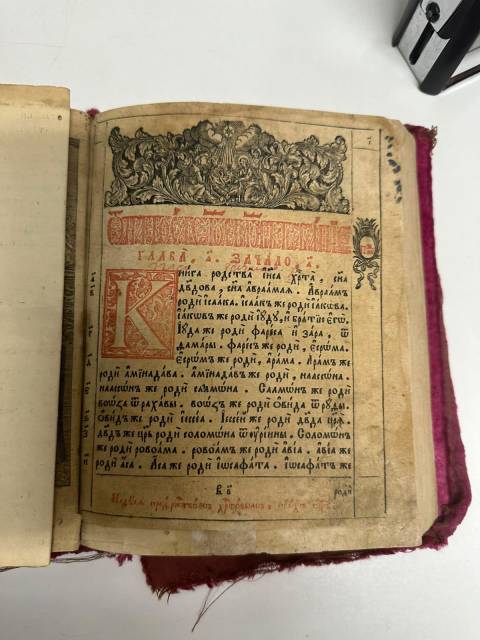 ГЛАВА̀, а҃. ЗАЧАЛО, а҃.
Кни́га родства̀ і҆и҃са хр҃та̀, сн҃а
дв҃дова, сн҃а а҆враа́мля. А҆враа́мъ
родѝ і҆саа́ка. і҆саа́къ же родѝ і҆а́кѡва.
і҆а́кѡвъ же родѝ і҆у́ду, и҆ бра́тїю є҆гѡ̀.
І҆у́да же родѝ фаре́са и҆ за́ра, ѿ
ѳама́ры. фаре́съ же родѝ, є҆срѡ́ма.
Є҆срѡ́мъ же родѝ, а҆ра́ма. А҆ра́мъ же
родѝ а҆мїнада́ва. а҆мїнада́въ же родѝ, наассѡ́на.
наассѡ́нъ же родѝ салмѡ́на. Салмѡ́нъ же родѝ
воо́за ѿ раха́вы. воо́зъ же родѝ ѻ҆ви́да ѿ ру́ѳы.
Ѻ҆ви́дъ же родѝ і҆ессе́а. І҆ессе́й же родѝ дв҃да цр҃ѧ̀.
дв҃дъ же цр҃ь родѝ соломѡ́на ѿ ѹ҆рі́ины. Соломѡ́нъ
же родѝ ровоа́ма. ровоа́мъ же родѝ а҆ві́а. А҆ві́а же
родѝ а҆́са. А҆́са же родѝ і҆ѡсафа́та. І҆ѡсафа́тъ же
родѝ